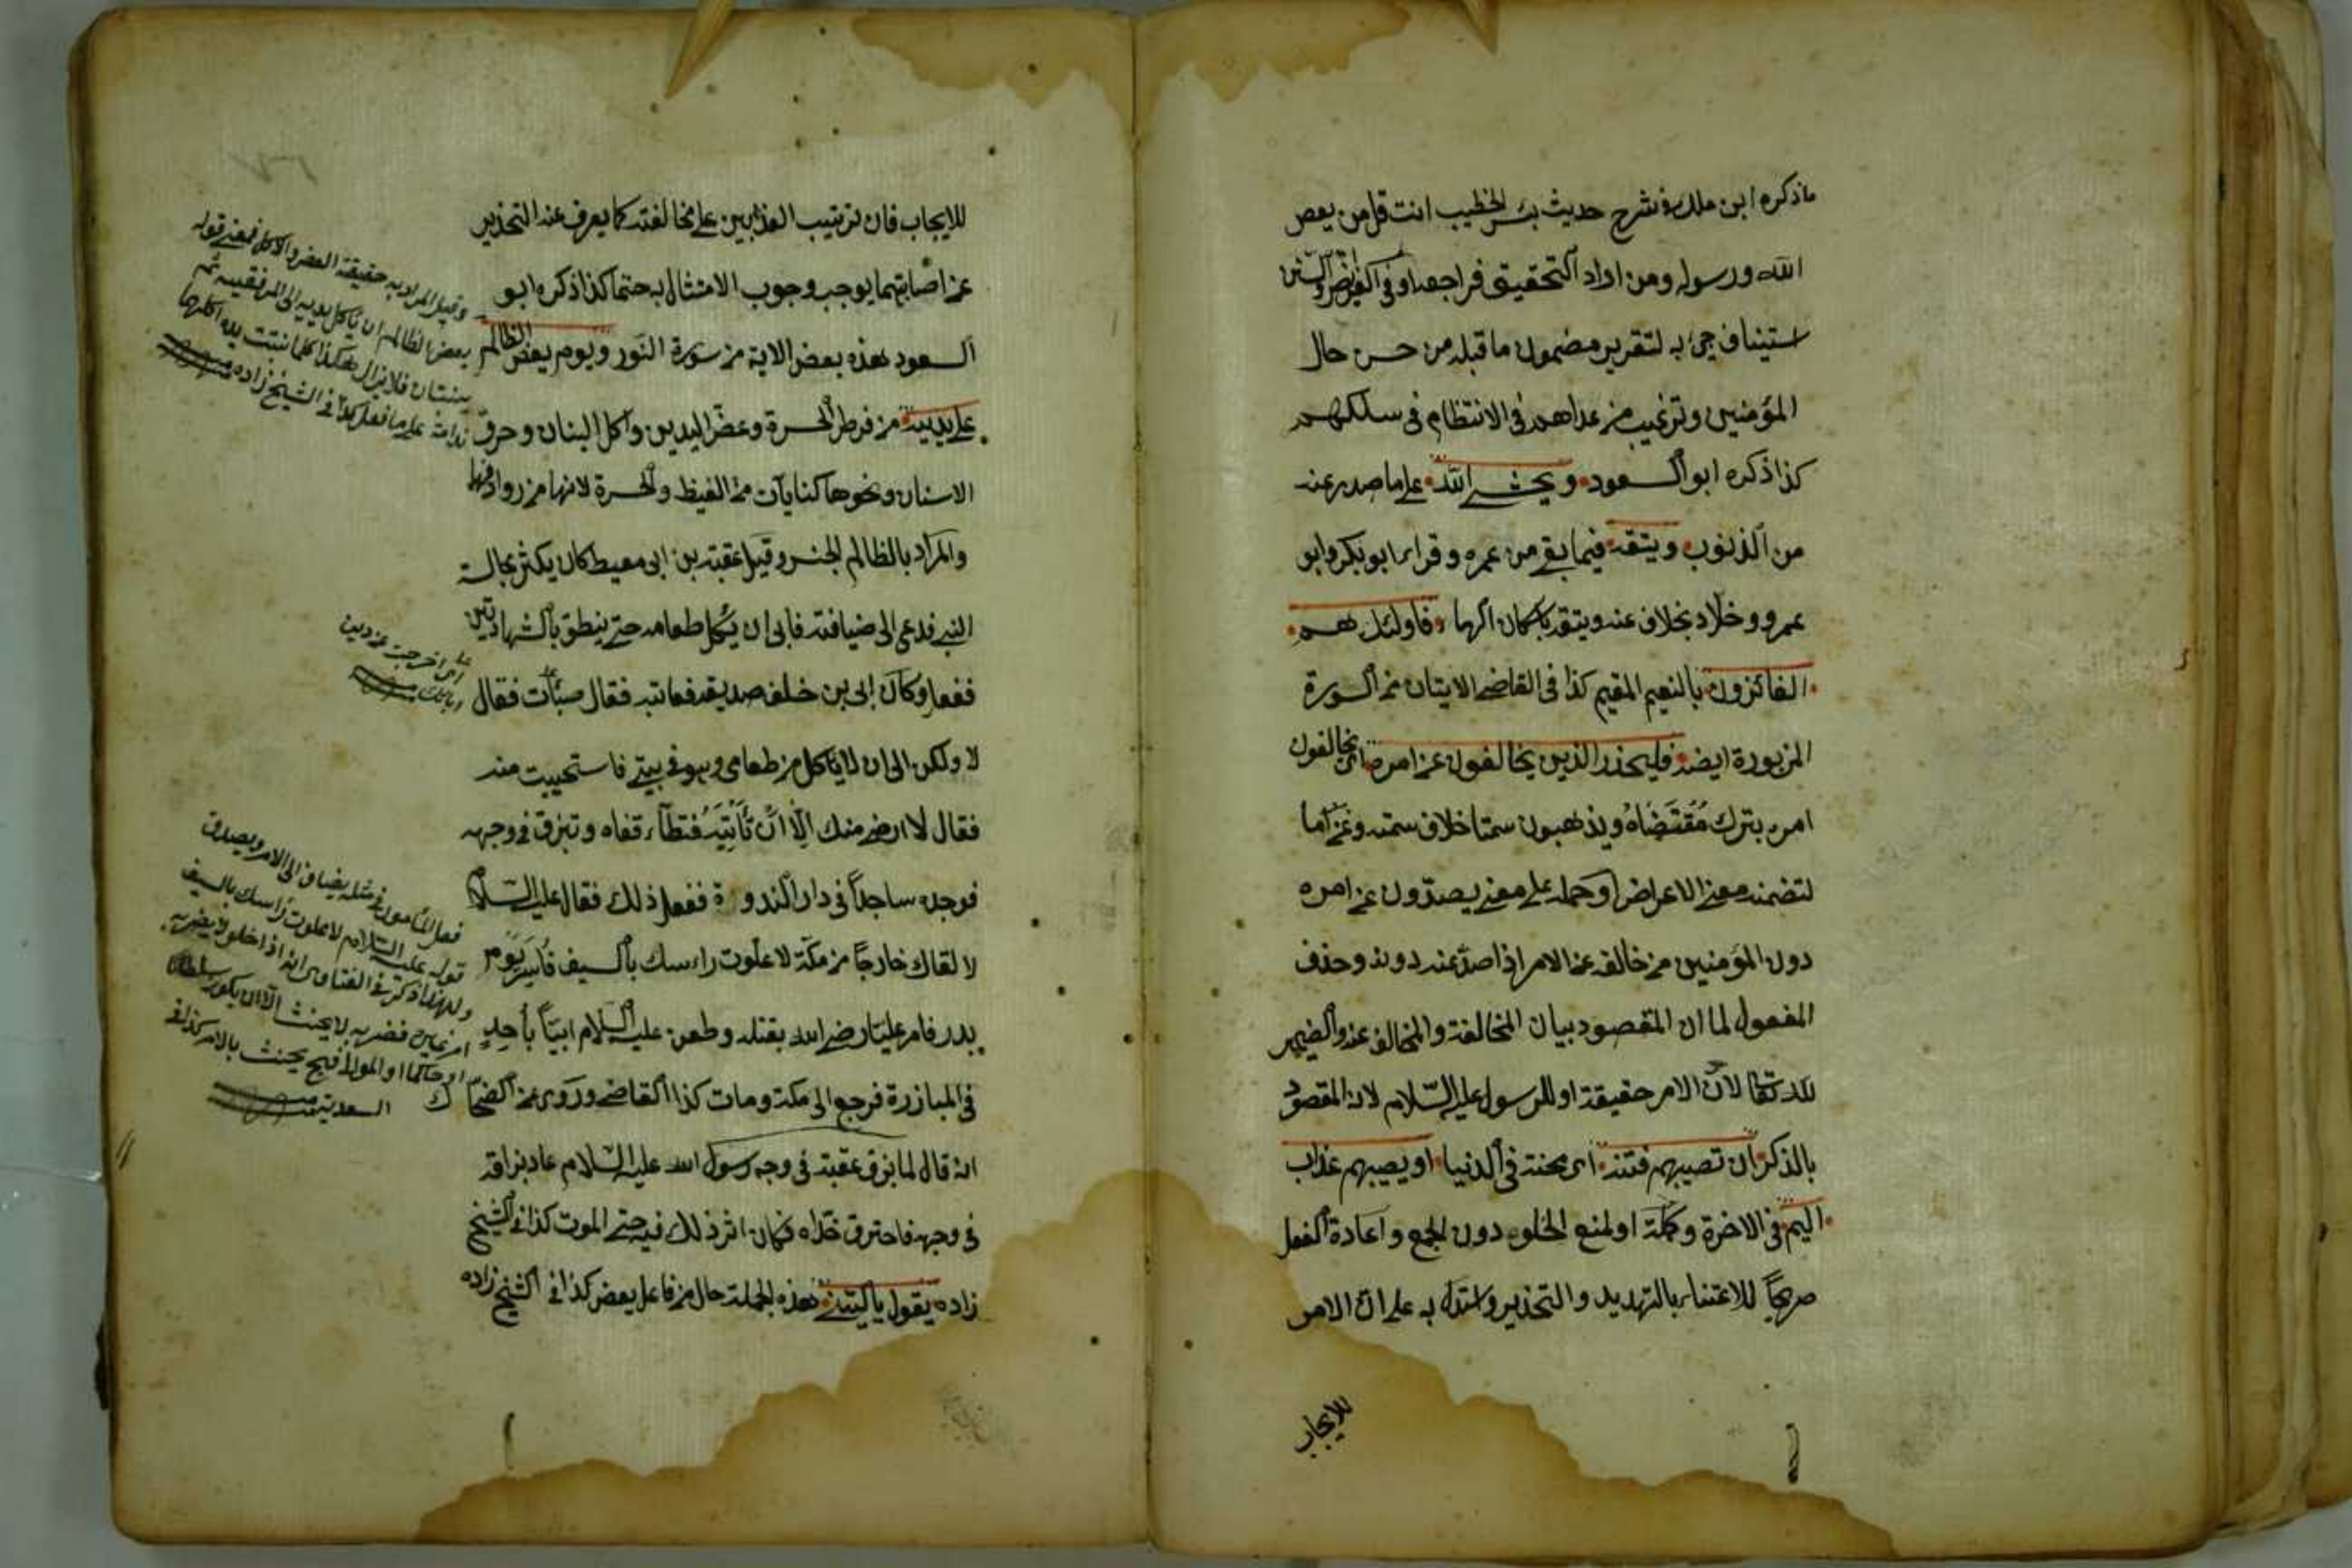 ماذكره ابن ملك فى شرح حديث بئس الخطيب انت قل من يعص
الله ورسوله ومن اراد التحقيق فراجعه او فى الفرائض والسنن
استيناف جئ به لتقرير مضمون ما قبله من حسن حال
المؤمنين وترغيب من عداهم فى الانتظام فى سلكهم
كذا ذكره ابو السعود ويخش الله على ما صدر عنه
من الذنوب ويتقه فيما بقى من عمره وقراء ابو بكر وابو
عمرو وخلاد بخلاف عنه ويتقه باسكان الهاء فاولئك هم
الفائزون بالنعيم المقيم كذا فى القاضى الايتان من السورة
المزبورة ايضا فليحذر الذين يخالفون عن امره اى يخالفون
امره بترك مقتضاه ويذهبون سمتا خلاف سمته وعن اما
لتضمنه معنى الاعراض او حمله على معنى يصدون عن امره
دون المؤمنين من خالفه عن الامر اذا صد عنه دونه وحذف
المفعول لما ان المقصود بيان المخالفة والمخالف عنه والضمير
لله تعالى لان الامر حقيقة او للرسول عليه السلام لان المقصود
بالذكر ان تصيبهم فتنة اى محنة فى الدنيا او يصيبهم عذاب
اليم فى الاخرة وكلمة او لمنع الخلو دون الجمع واعادة الفعل
صريحا للاعتناء بالتهديد والتحذير واستدل به على ان الامر
للايجاب
للايجاب فان ترتيب العذابين على مخالفته كما يعرف عنه التحذير
عن اصابتهما يوجب وجوب الامتثال به حتما كذا ذكره ابو
السعود هذه بعض الاية من سورة النور ويوم يعض الظالم
على يديه من فرط الحسرة وعض اليدين واكل البنان وحرق
الاسنان ونحوها كنايات من الغيظ والحسرة لانها من روادفها
والمراد بالظالم الجنس وقيل عقبة بن ابى معيط كان يكثر مجالسة
النبى فدعى الى ضيافته فابى ان يأكل طعامه حتى ينطق بالشهادتين
ففعل وكان ابى بن خلف صديقه فعاتبه فقال صبئات فقال
لا ولكن الى ان لا يأكل من طعامى وهو فى بيتى فاستحييت منه
فقال لا ارضى منك الا ان تأتيه فتطأ قفاه وتبزق فى وجهه
فوجده ساجدا فى دار الندوة ففعل ذلك فقال عليه السلام
لا لقاك خارجا من مكة لا علوت راسك بالسيف فاسر يوم
بدر فامر عليا رضى الله بقتله وطعن عليه السلام ابيا بأحد
فى المبارزة فرجع الى مكة ومات كذا القاضى وروى عن الضحاك
انه قال لما بزق عقبة فى وجه رسول الله عليه السلام عاد بزاقه
فى وجهه فاحترق خداه فكان اثر ذلك فيه حتى الموت كذا فى الشيخ
زاده يقول ياليتنى هذه الجملة حال من فاعل يعض كذا فى الشيخ زاده
وقيل المراد به حقيقة العض والاكل فمعنى قوله
يعض الظالم ان يأكل يديه الى المرفقين ثم
ينبتان فلا يزال هكذا كلما نبتت يده اكلها
ندامة على ما فعل كذا فى الشيخ زاده
اى اخرجت عن دين
ابائك
فعل المأمور فى مثله يضاف الى الامر ويصدق
قوله عليه السلام لا علوت رأسك بالسيف
ولهذا ذكر فى الفتاوى انه اذا حلف لا يضربه
امر غيره فضربه لا يحنث الا ان يكون سلطانا
او حاكما او المولى فح يحنث بالامر كذا فى
السعدية